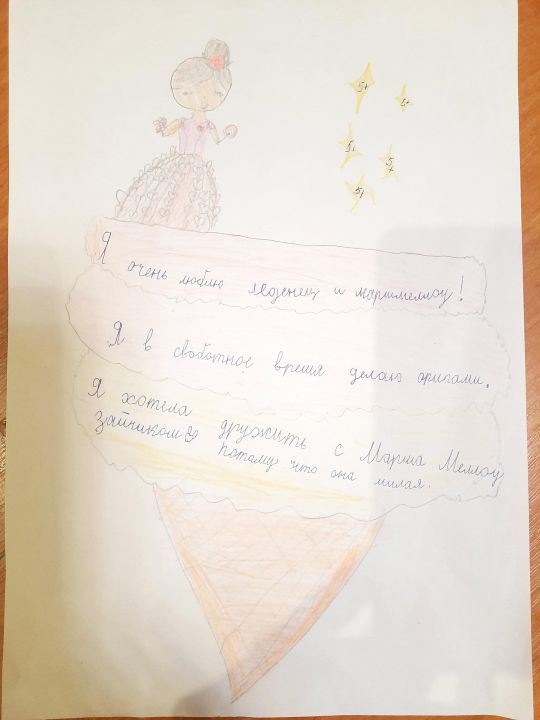 5+
5+
5+
5+
5+
Я очень люблю леденец и маршмеллоу!
Я в своботное время делаю оригами.
Я хотела дружить с Марша Меллоу
зайчиком потому что она милая.